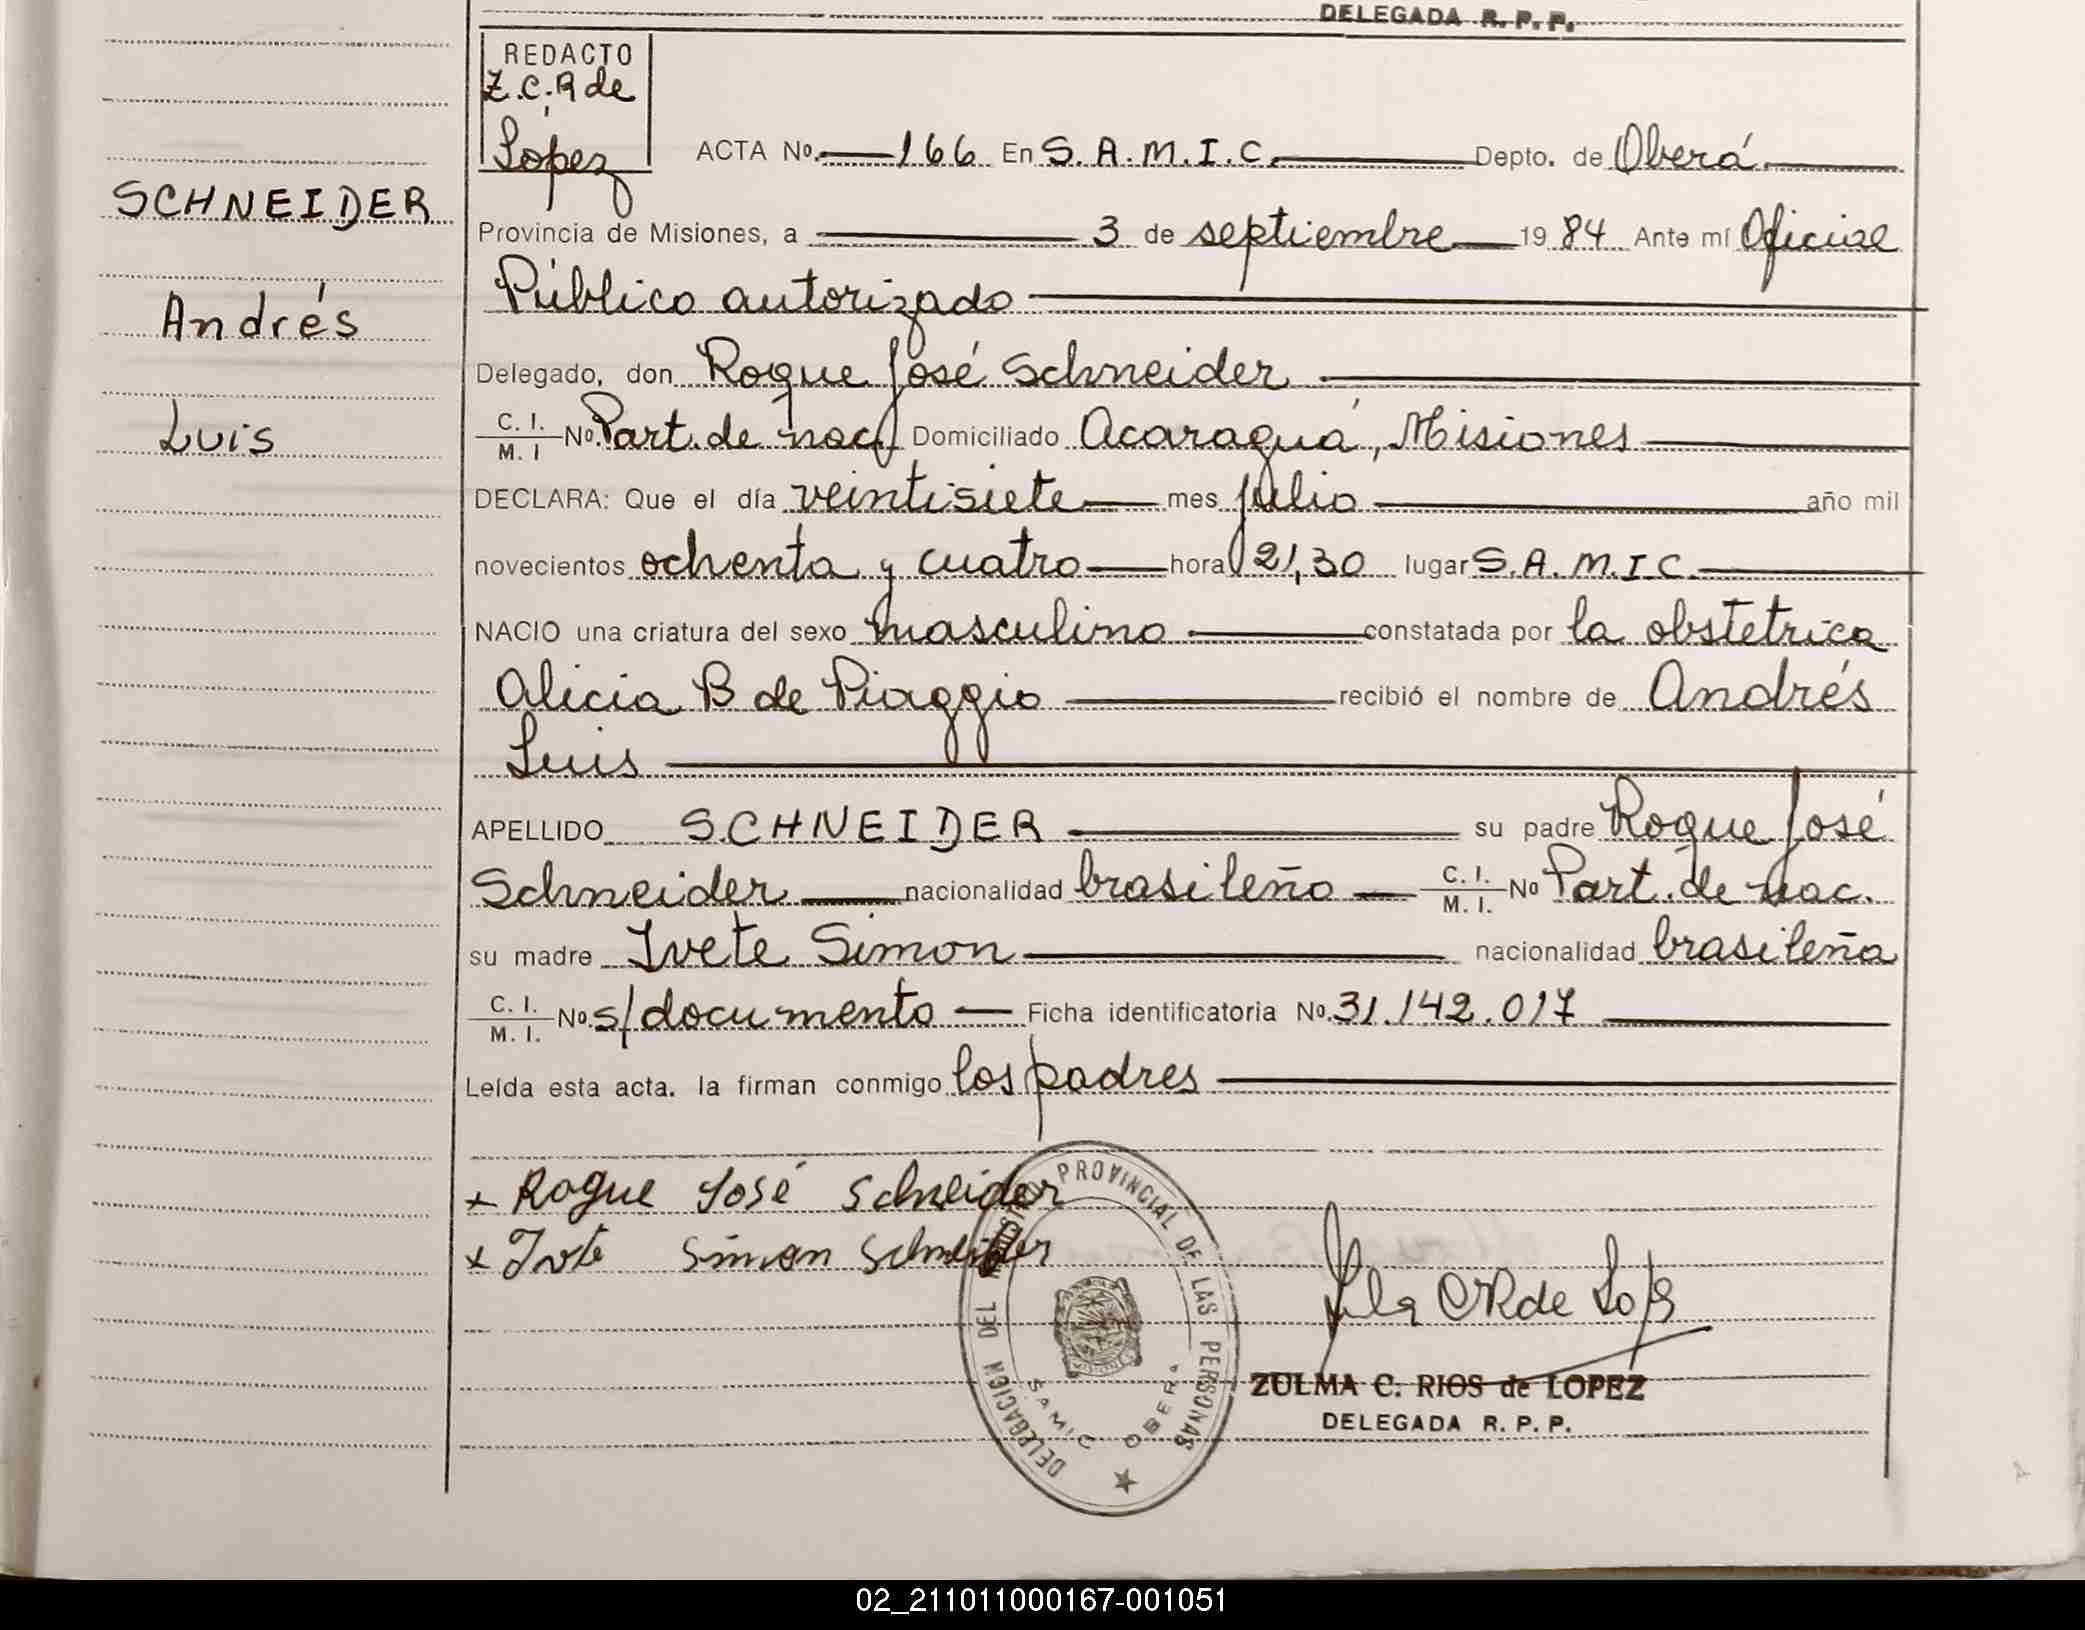 DELEGADA R. P. P.
REDACTO
Z.C.R de
López
SCHNEIDER
Andrés
Luis
ACTA No. 166 En S.A.M.I.C. Depto. de Oberá
Provincia de Misiones, a 3 de septiembre 1984 Ante mí Oficial
Público autorizado
Delegado, don Roque José Schneider
C. I. / M. I No. Part. de nac. Domiciliado Acaraguá, Misiones
DECLARA: Que el día veintisiete mes julio año mil
novecientos ochenta y cuatro hora 21,30 lugar S.A.M.I.C.
NACIO una criatura del sexo masculino constatada por la obstetrica
Alicia B de Piaggio recibió el nombre de Andrés
Luis
APELLIDO SCHNEIDER su padre Roque José
Schneider nacionalidad brasileño C. I. / M. I. No Part. de nac.
su madre Ivete Simon nacionalidad brasileña
C. I. / M. I. No. s/documento Ficha identificatoria No. 31.142.017
Leída esta acta. la firman conmigo los padres
x Roque José Schneider
x Ivete Simon Schneider
DELEGACION DEL REGISTRO PROVINCIAL DE LAS PERSONAS
SAMIC OBERA
ZULMA C. RIOS de LOPEZ
DELEGADA R. P. P.
02_211011000167-001051